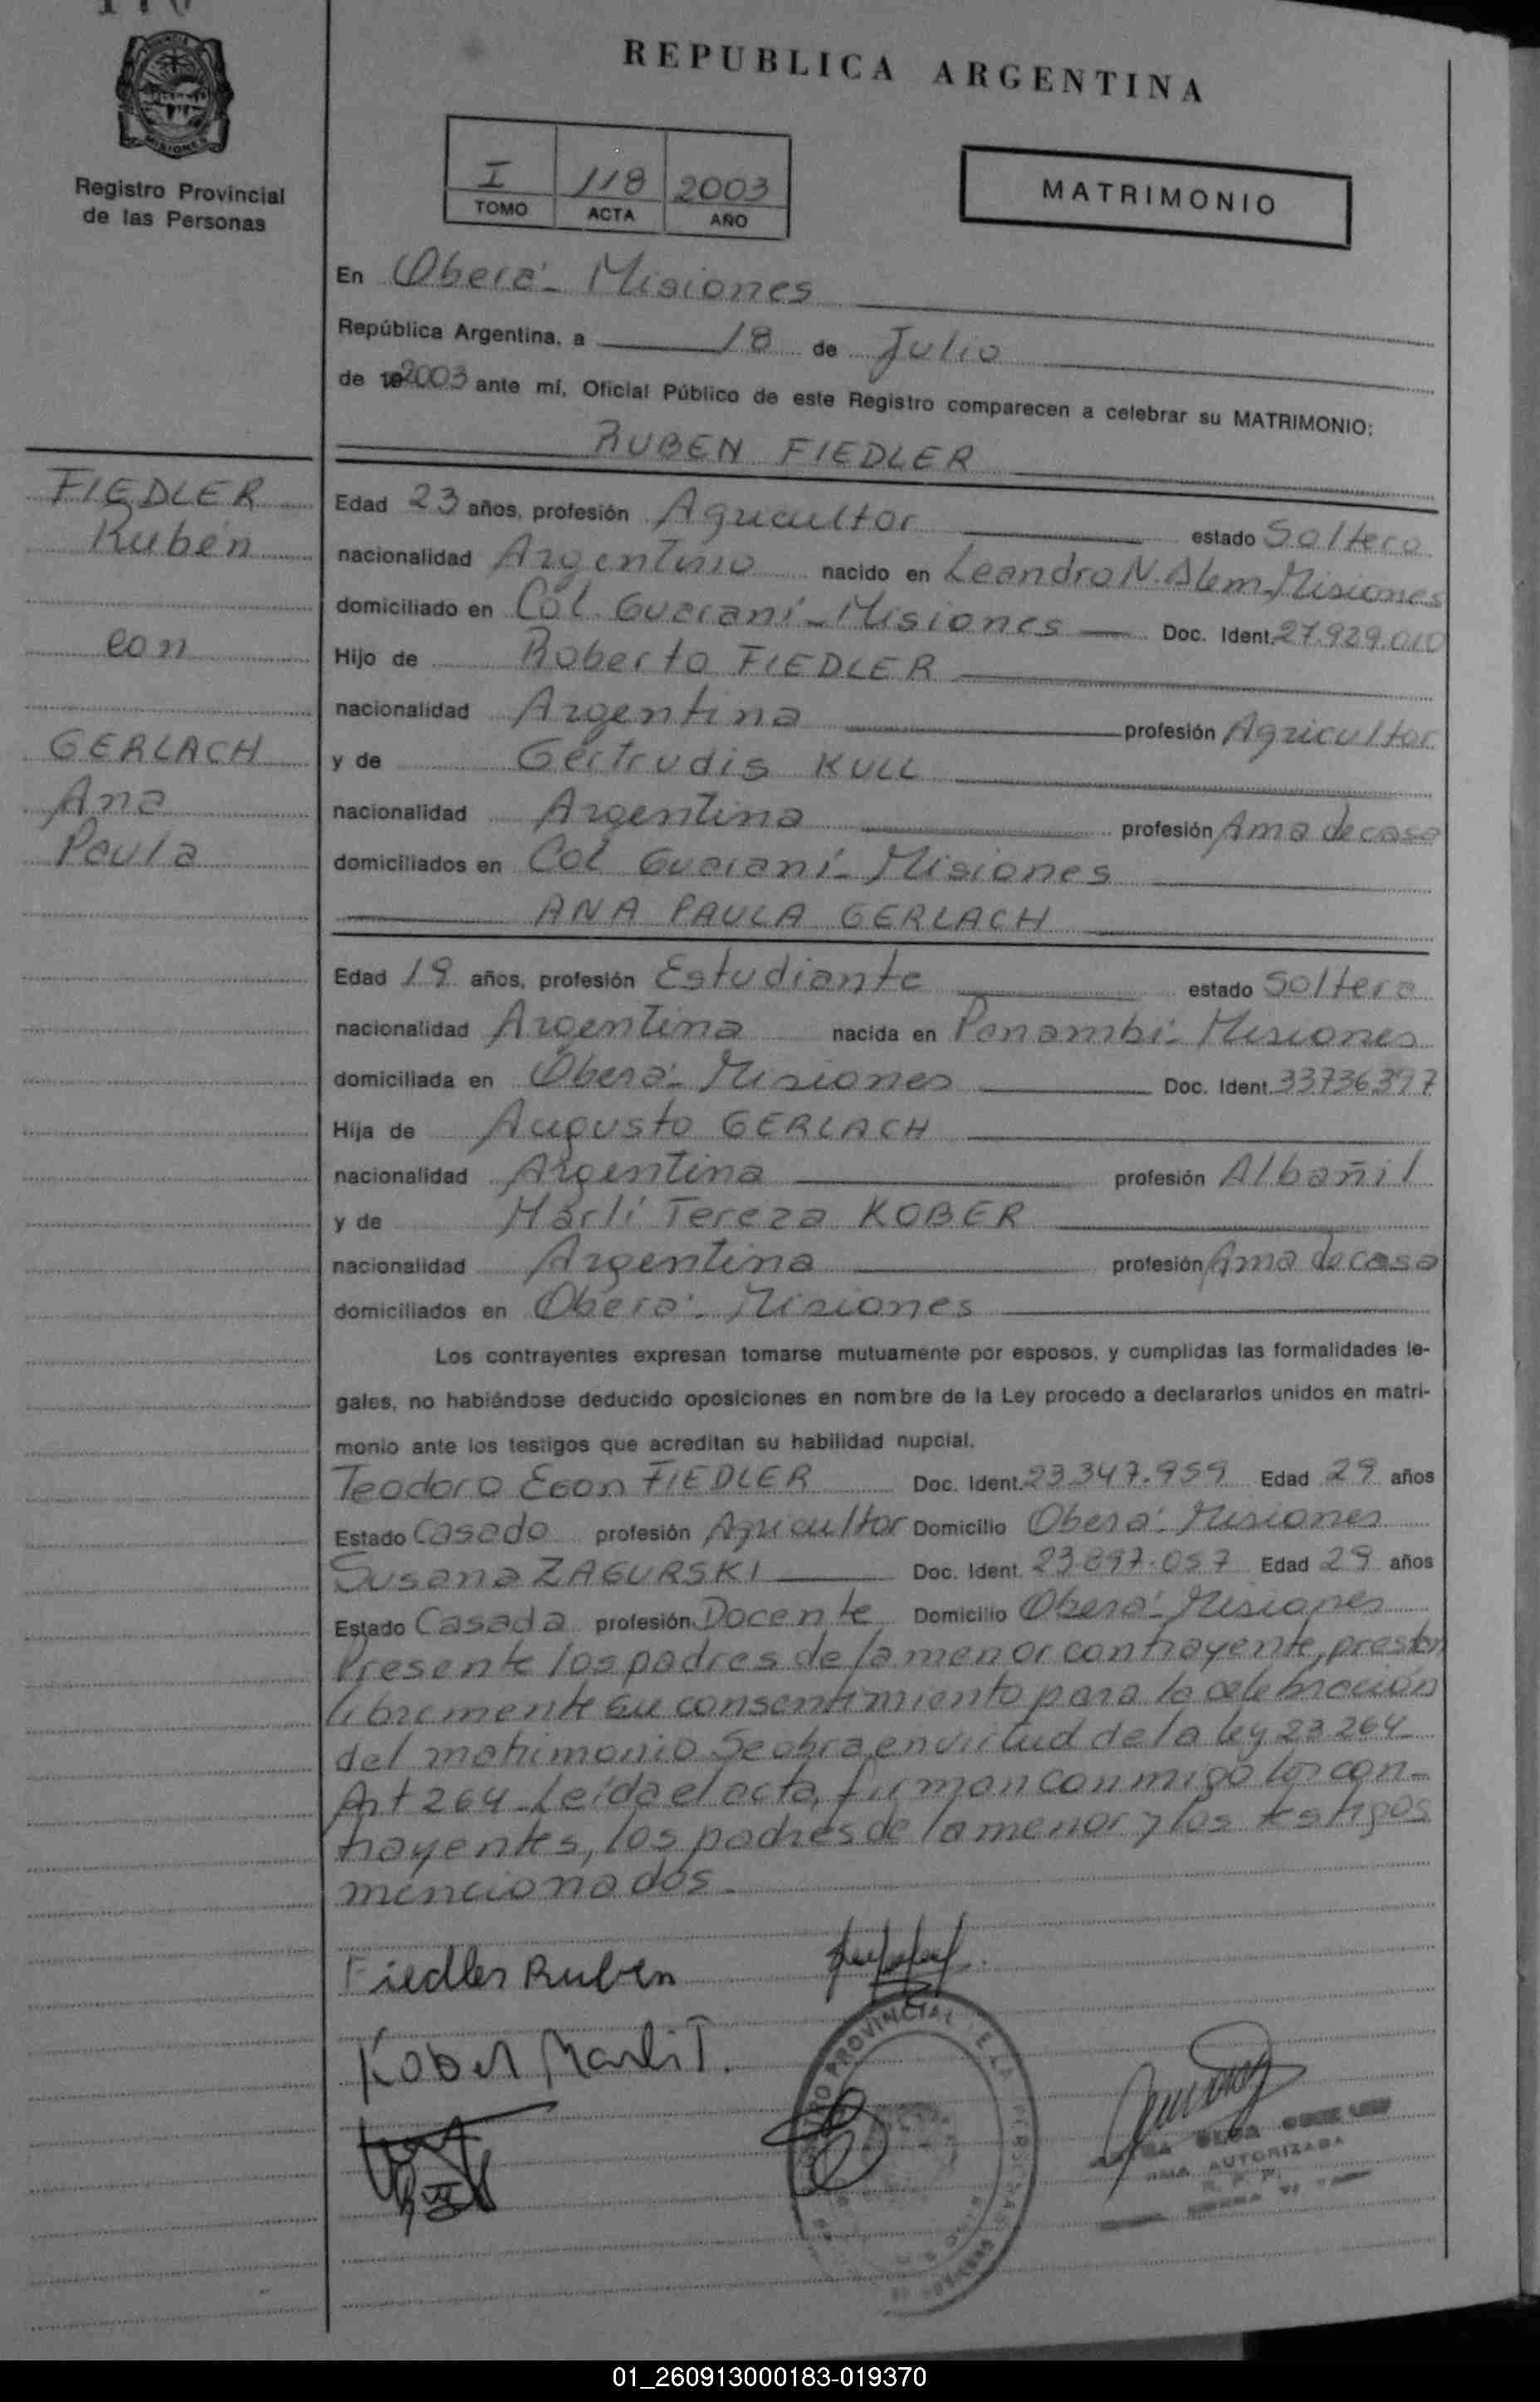 REPUBLICA ARGENTINA
MISIONES
Registro Provincial
de las Personas
I 118 2003
TOMO ACTA AÑO
MATRIMONIO
En Oberá - Misiones
República Argentina, a 18 de Julio
de 2003 ante mí, Oficial Público de este Registro comparecen a celebrar su MATRIMONIO:
RUBEN FIEDLER
FIEDLER
Rubén
con
GERLACH
Ana
Paula
Edad 23 años, profesión Agricultor estado Soltero
nacionalidad Argentino nacido en Leandro N. Alem - Misiones
domiciliado en Col. Guaraní - Misiones Doc. Ident. 27.929.010
Hijo de Roberto FIEDLER
nacionalidad Argentina profesión Agricultor
y de Gertrudis KULL
nacionalidad Argentina profesión Ama de casa
domiciliados en Col Guaraní - Misiones
ANA PAULA GERLACH
Edad 19 años, profesión Estudiante estado Soltera
nacionalidad Argentina nacida en Panambí - Misiones
domiciliada en Oberá - Misiones Doc. Ident. 33736397
Hija de Augusto GERLACH
nacionalidad Argentina profesión Albañil
y de Marlí Tereza KOBER
nacionalidad Argentina profesión Ama de casa
domiciliados en Oberá - Misiones
Los contrayentes expresan tomarse mutuamente por esposos, y cumplidas las formalidades le-
gales, no habiéndose deducido oposiciones en nombre de la Ley procedo a declararlos unidos en matri-
monio ante los testigos que acreditan su habilidad nupcial.
Teodoro Egon FIEDLER Doc. Ident. 23.347.959 Edad 29 años
Estado Casado profesión Agricultor Domicilio Oberá - Misiones
Susana ZAGURSKI Doc. Ident. 23.897.057 Edad 29 años
Estado Casada profesión Docente Domicilio Oberá - Misiones
Presente los padres de la menor contrayente, prestan
libremente su consentimiento para la celebración
del matrimonio Se obra en virtud de la ley 23.264
Art 264 - Leída el acta, firman conmigo los con-
trayentes, los padres de la menor y los testigos
mencionados -
Fiedler Ruben
Kober Marli T.
PROVINCIAL
AUTORIZADA
01_260913000183-019370